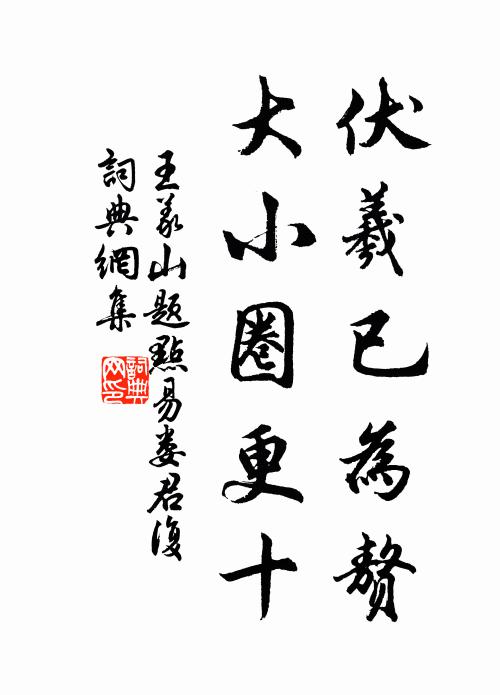 伏羲已為贅
大小圈更十
王義山題點易婁君復
詞典網集
詞典網印